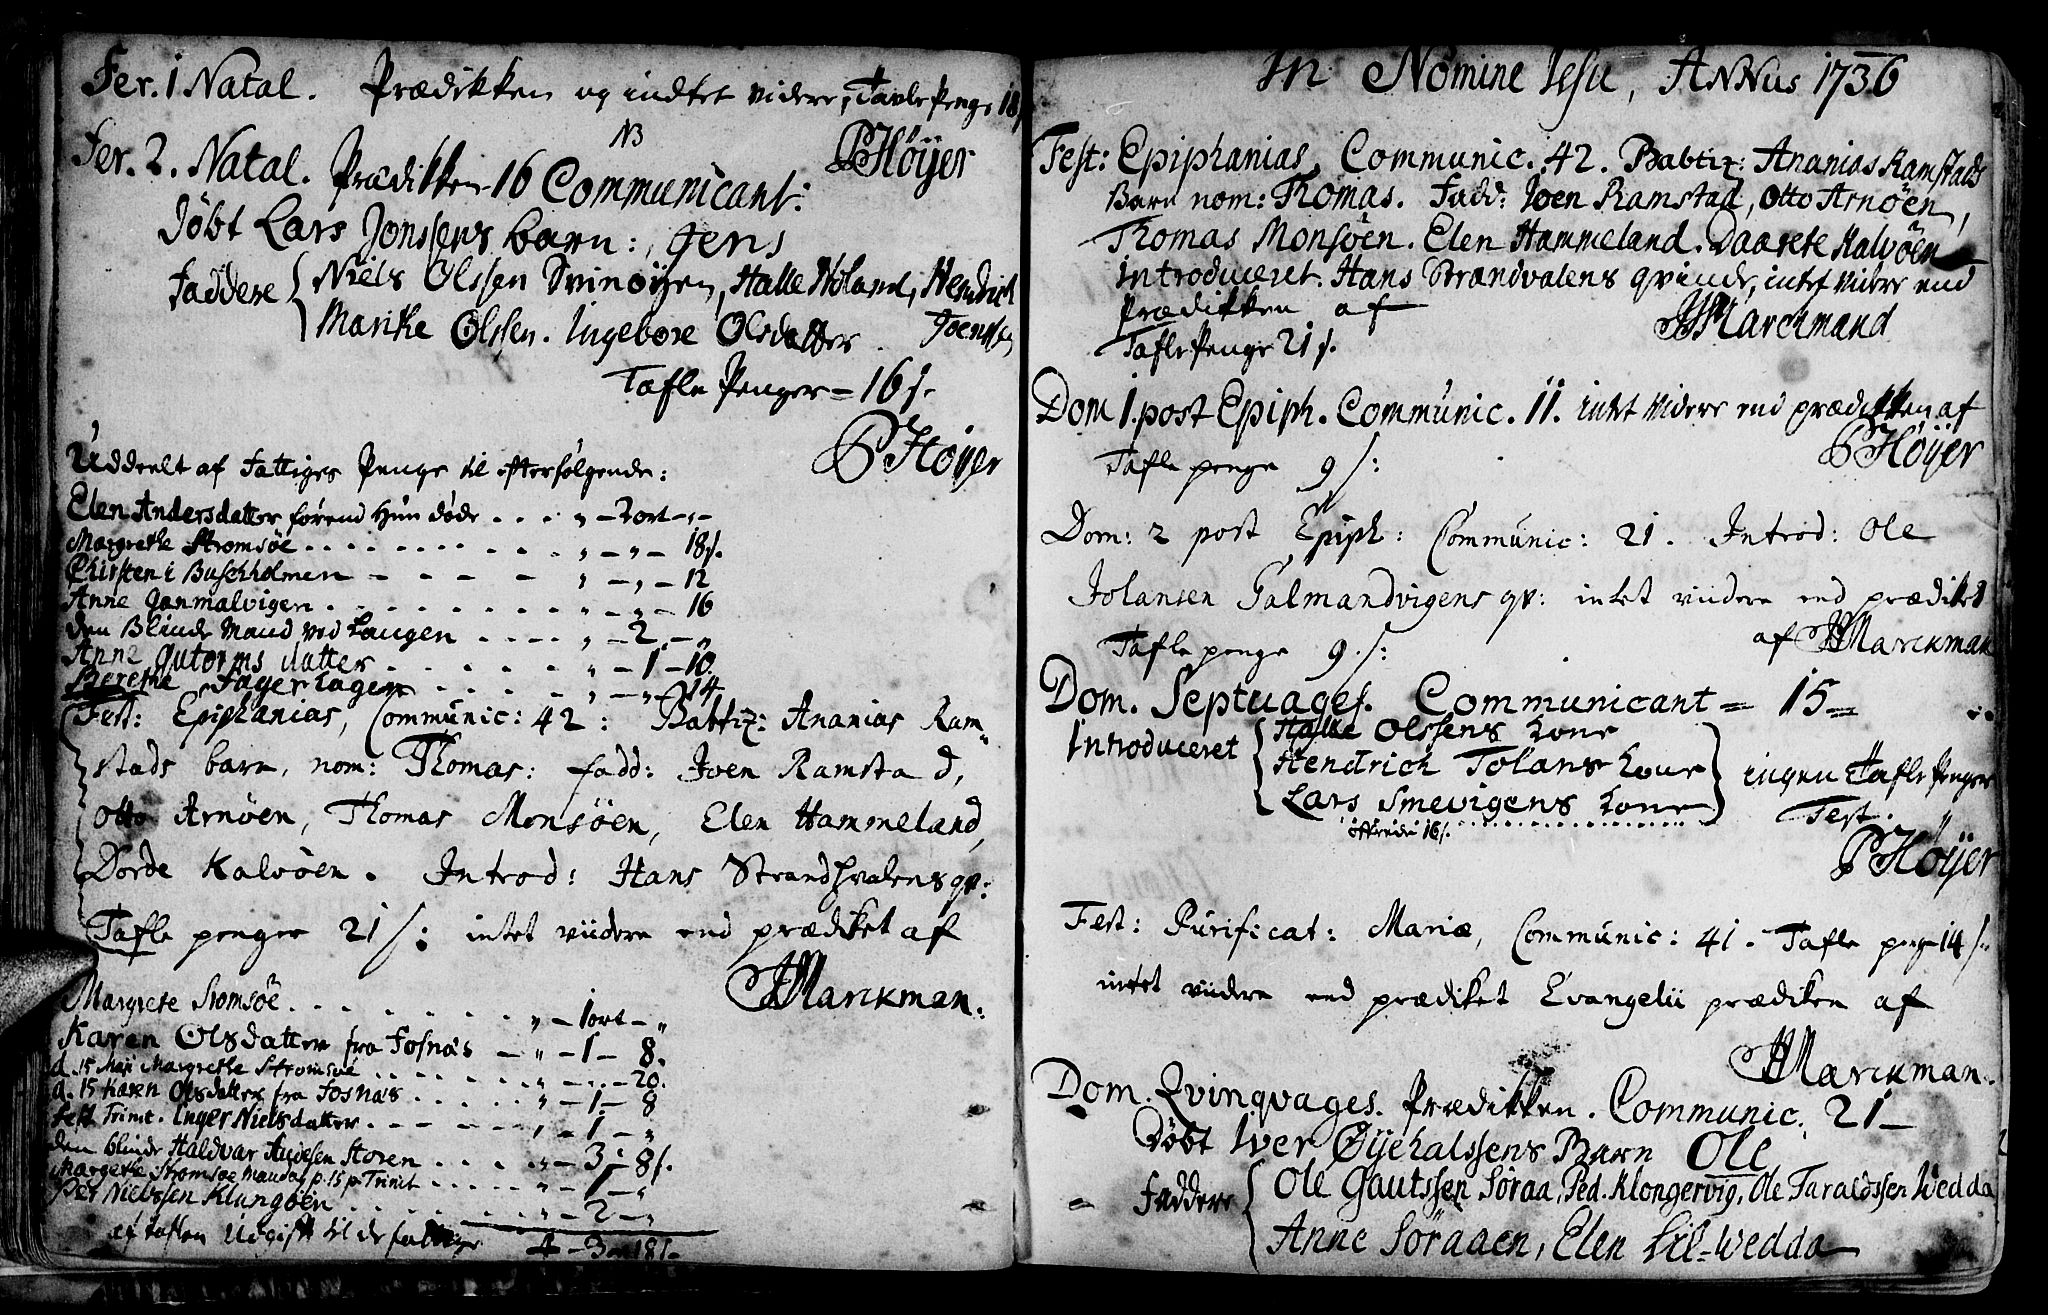 Fer. 1 Natal. Prædikken og indtet videre, Tavle Penge 18 s
NB
PHöijer
Fer. 2. Natal. Prædikken 16 Communicant:
Döbt Lars Jonssens barn: Jens
Faddere Niels Olssen Svinöijen, Halle Höland, Hendrich
Joenssen
Marike Olssen. Ingebore Olsdatter.
Tafle Penger = 16 s.
PHöijer
Uddeelt af Fattiges Penge til efterfölgende:
Elen Andersdatter förend Hun döde . . . „ – 2 ort – „ –
Margrethe Stromsöe . . . . „ – „ – 18 s.
Chirsten i Buschholmen – – – – „ – „ – 12
Anne Janmalvigen . . . . „ – „ – 16
den Blinde Mand ved Laugen . . . . „ – 2 – „
Anne Gutorms datter . . . . „ – 1 – 10.
Berethe Fagerhagen . . . . „ – „ – 14.
Fest: Epiphanias, Communic: 42: Babtiz: Ananias Ram„
stads barn, nom: Thomas: fadd: Joen Ramstad,
Otto Arnöen, Thomas Monsöen, Elen Hammeland,
Dorde Kalvöen. Introd: Hans Strandhvalens qv:
Tafle penger 21 s: intet viidere end prædiket af
HMarckman.
Margrete Stromsöe . . . . „ – 1 ort – „
Karen Olsdatter fra Fosnæs – „ – 1 – 8.
d. 15 Maji Margrethe Stromsöe . . . . „ – „ – 20.
d. 15 Karen Olsdatter fra Fosnæs . . . . „ – 1 – 8
Fest Trinit. Inger Nielsdatter . . . . „ – 1 – „
den blinde Haldvar Andesen Storen . . . . „ – 3 – 8 s.
Margethe Stromsöe Mandag p. 15 p. Trinit . . . . „ – 1 – „
Per Nielssen Klungöen . . . . „ – 2 – „
af taflen Udgift til de fattige 4 – 3 – 18 s.
In Nomine Jesu, Annus 1736
Fest: Epiphanias, Communic. 42. Babtiz: Ananias Ramstads
Barn nom: Thomas. Fadd: Joen Ramstad, Otto Arnöen,
Thomas Monsöen. Elen Hammeland. Daarete Kalvöen
Introduceret. Hans Strandvalens qvinde, intet videre end
Prædikken af HMarckmand
Tafle Penge 21 s.
Dom 1. post Epiph. Communic. 11. intet videre end prædikken af
PHöijer
Tafle penge 9 s:
Dom: 2 post Epiph: Communic: 21. Introd: Ole
Jolansen Salmandvigens qv: intet viidere end prædiket
af HMarckman
Tafle penge 9 s:
Dom. Septuages. Communicant = 15 –
Introduceret Halle Olssens kone
Hendrich Tolans kone
Lars Smevigens kone
ingen Tafle Penger
Test.
offrede 16 s.
PHöijer
Fest: Purificat: Mariæ, Communic: 41. Tafle penge 14 s:
intet viidere end prædiket Evangelii prædiken af
HMarckman.
Dom. Qvinqvages. Prædikken. Communic. 21 –
Döbt Iver Öijehalssens Barn Ole
Faddere Ole Gautssen Söraa, Ped. Klongervig, Ole Taraldssen Wedda
Anne Söraaen, Elen Lil-Wedda